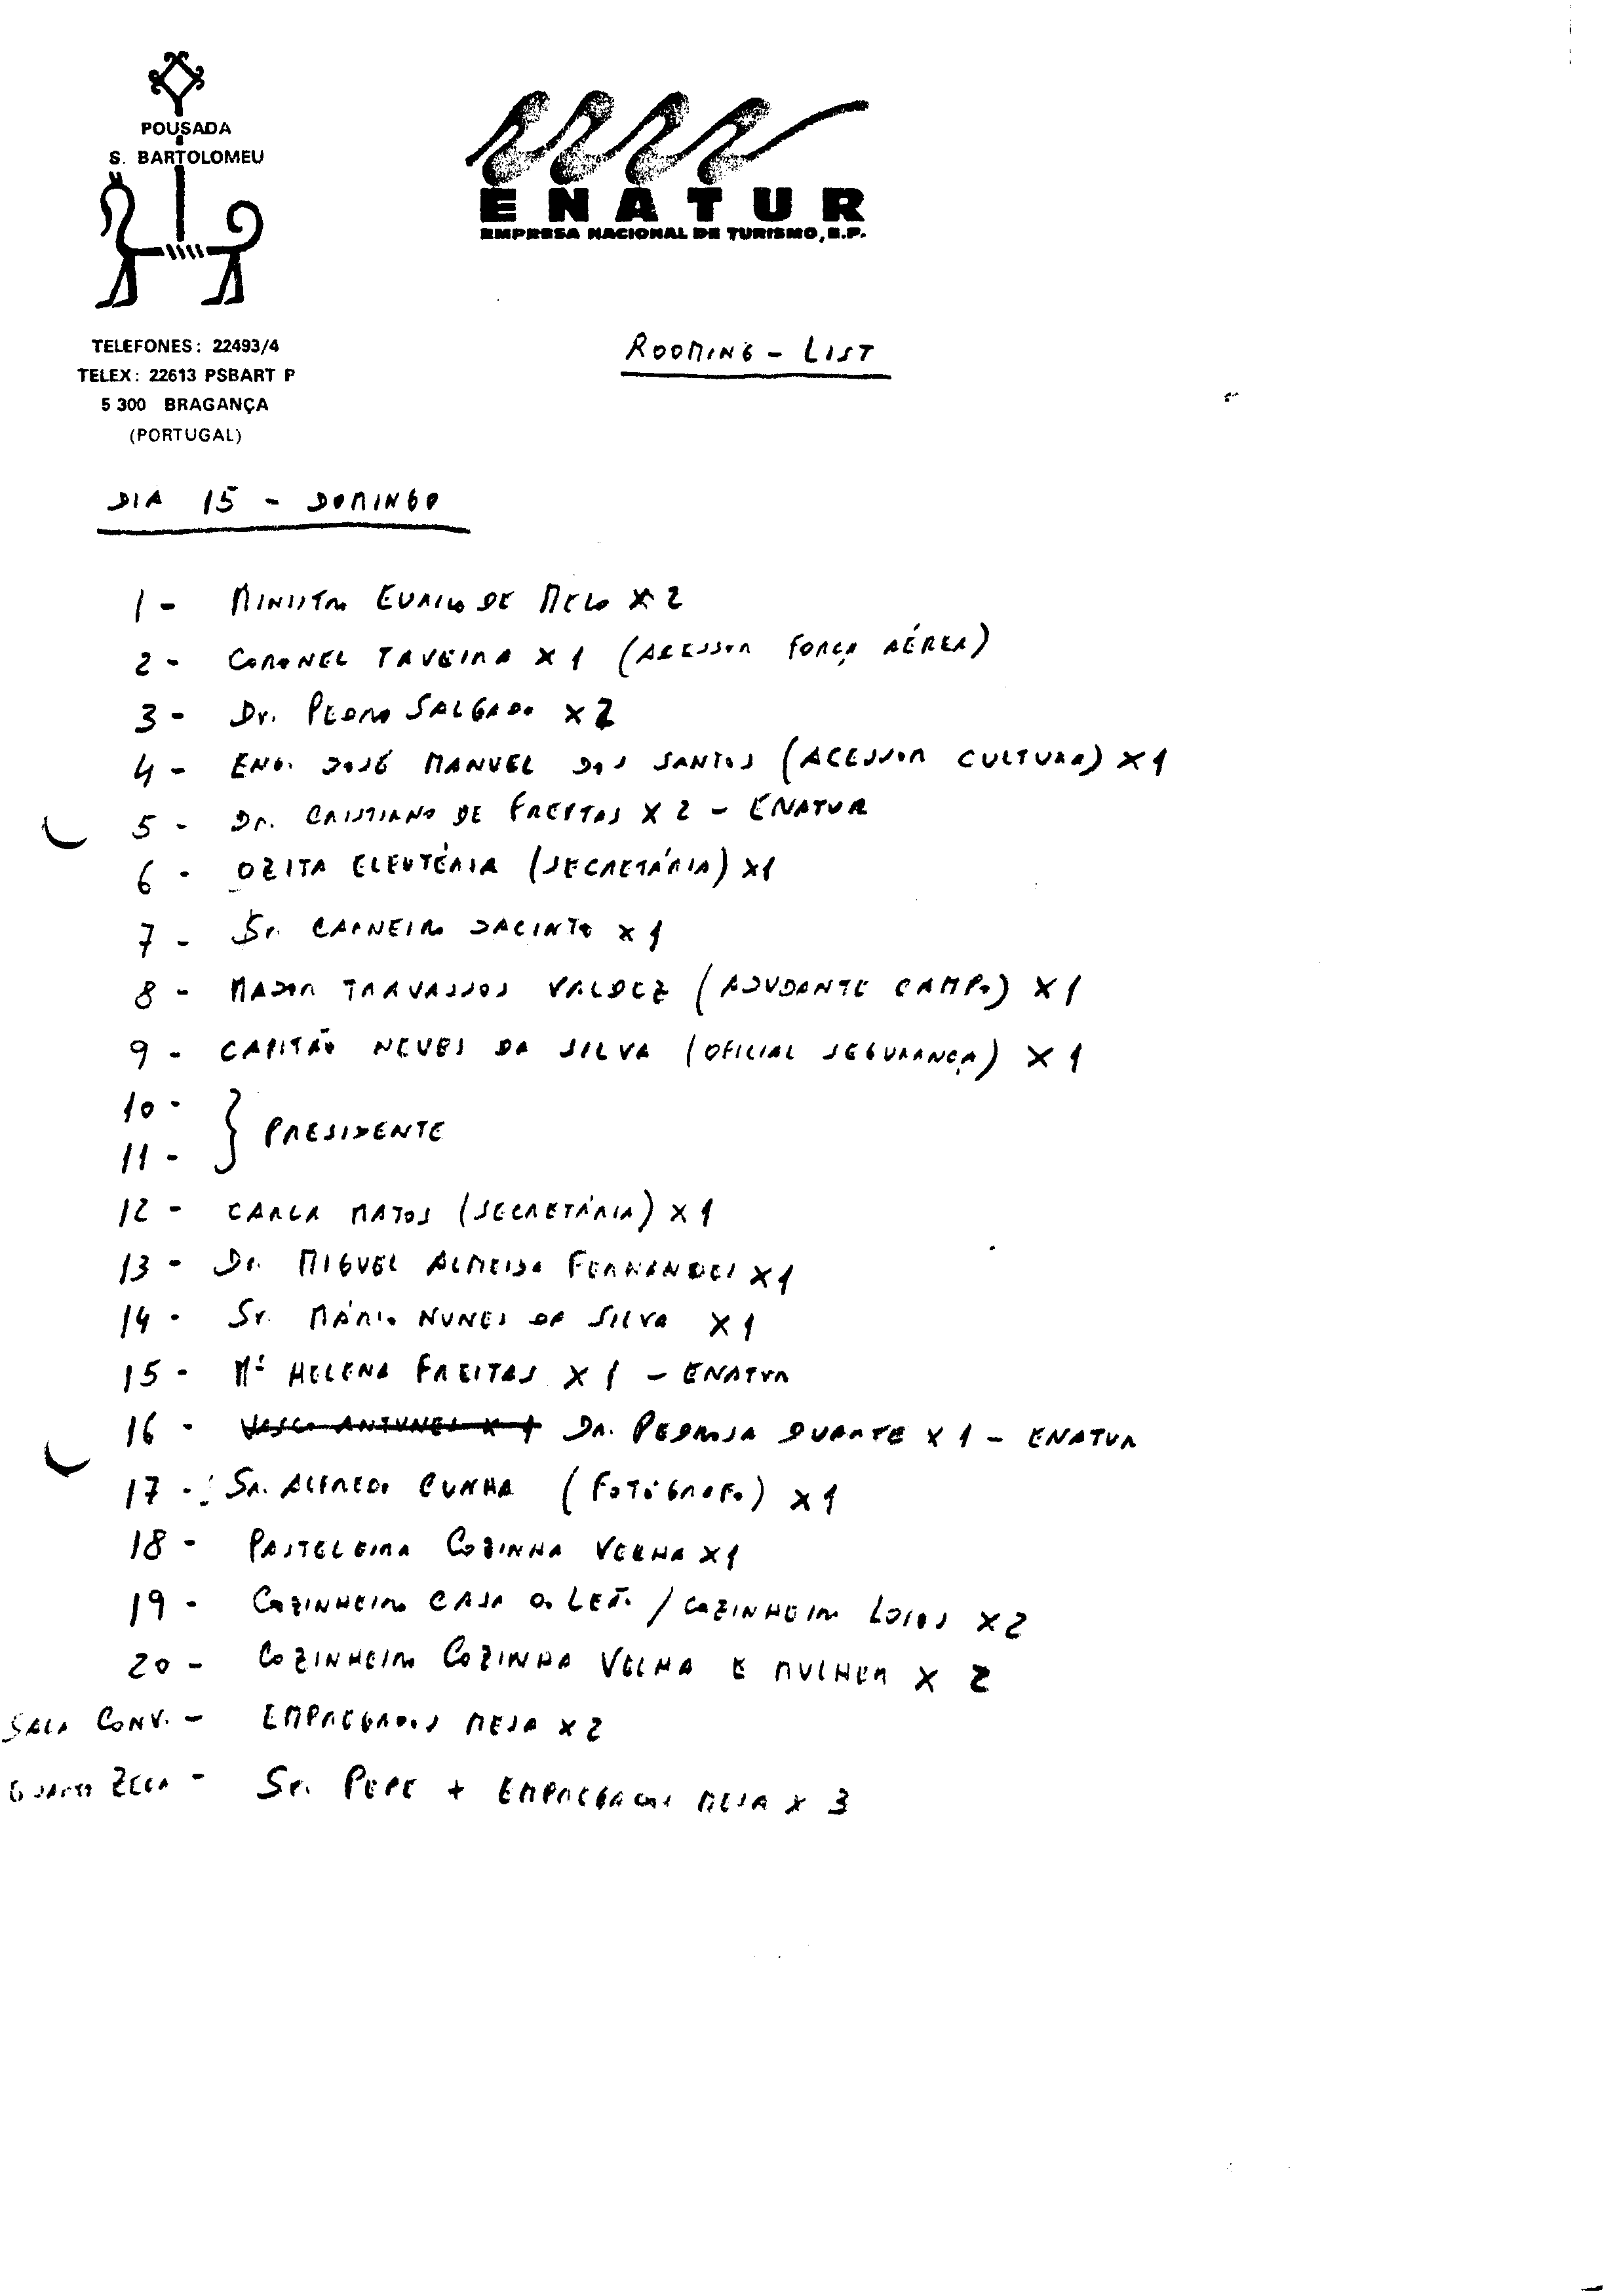 POUSADA
S. BARTOLOMEU
ENATUR
EMPRESA NACIONAL DE TURISMO, E.P.
TELEFONES: 22493/4
TELEX: 22613 PSBART P
5 300 BRAGANÇA
(PORTUGAL)
ROOMING - LIST
DIA 15 - DOMINGO
1 - MINISTRO EURICO DE MELO X 2
2 - CORONEL TAVEIRA X 1 (ACESSOR FORÇA AÉREA)
3 - Dr. PEDRO SALGADO X 2
4 - ENG. JOSÉ MANUEL DOS SANTOS (ACESSOR CULTURA) X 1
5 - Dr. CRISTIANO DE FREITAS X 2 - ENATUR
6 - OZITA ELEUTÉRIA (SECRETÁRIA) X1
7 - Sr. CARNEIRO JACINTO X 1
8 - MAJOR TRAVASSOS VALDEZ (AJUDANTE CAMPO) X 1
9 - CAPITÃO NEVES DA SILVA (OFICIAL SEGURANÇA) X 1
10 -
} PRESIDENTE
11 -
12 - CARLA MATOS (SECRETÁRIA) X 1
13 - Dr. MIGUEL ALMEIDA FERNANDES X 1
14 - Sr. MÁRIO NUNES DA SILVA X 1
15 - Mª HELENA FREITAS X 1 - ENATUR
16 - VASCO ANTUNES X 1 DR. PEDROSA DUARTE X 1 - ENATUR
17 - SR. ALFREDO CUNHA (FOTÓGRAFO) X 1
18 - PASTELEIRA COZINHA VELHA X 1
19 - COZINHEIRO CASA DO LEÃO / COZINHEIRO LOIOS X 2
20 - COZINHEIRO COZINHA VELHA E MULHER X 2
SALA CONV. - EMPREGADOS MESA X 2
QUARTO ZECA - Sr. PEPE + EMPREGADOS MESA X 3